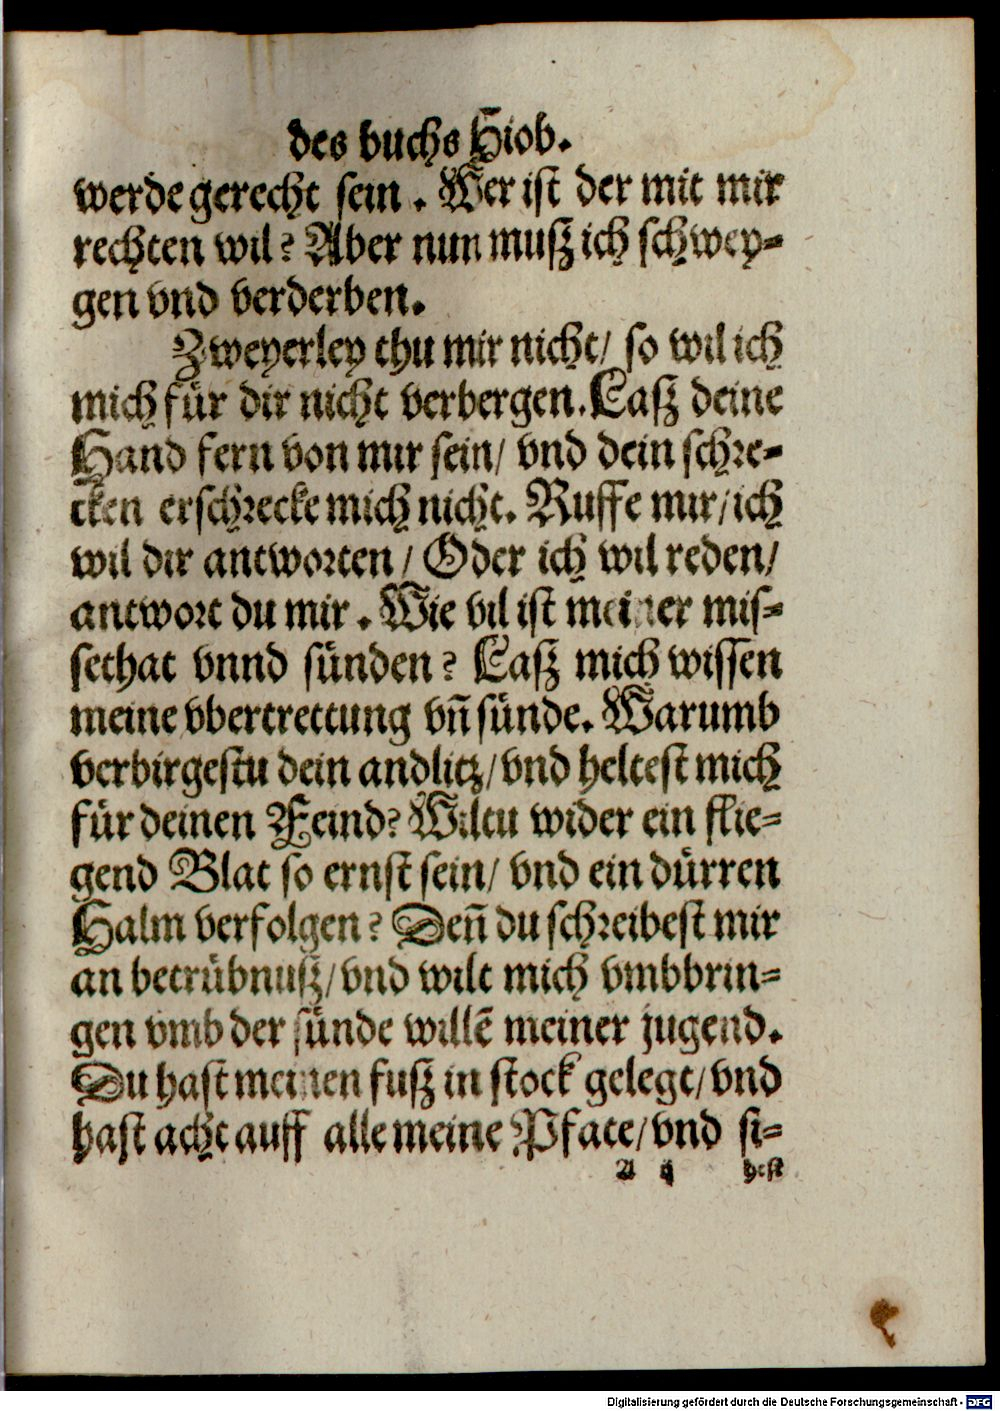 des buchs Hiob.
werde gerecht sein. Wer ist der mit mir
rechten wil? Aber nun musz ich schwey-
gen vnd verderben.
Zweyerley thu mir nicht/ so wil ich
mich für dir nicht verbergen. Lasz deine
Hand fern von mir sein/ vnd dein schre-
cken erschrecke mich nicht. Ruffe mir/ ich
wil dir antworten/ Oder ich wil reden/
antwort du mir. Wie vil ist meiner mis-
sethat vnnd sünden? Lasz mich wissen
meine vbertrettung vñ sünde. Warumb
verbirgestu dein andlitz/ vnd heltest mich
für deinen Feind? Wiltu wider ein flie-
gend Blat so ernst sein/ vnd ein dürren
Halm verfolgen? Deñ du schreibest mir
an betrübnusz/ vnd wilt mich vmbbrin-
gen vmb der sünde willẽ meiner jugend.
Du hast meinen fusz in stock gelegt/ vnd
hast acht auff alle meine Pfate/ vnd si-
A ij hest
Digitalisierung gefördert durch die Deutsche Forschungsgemeinschaft - DFG